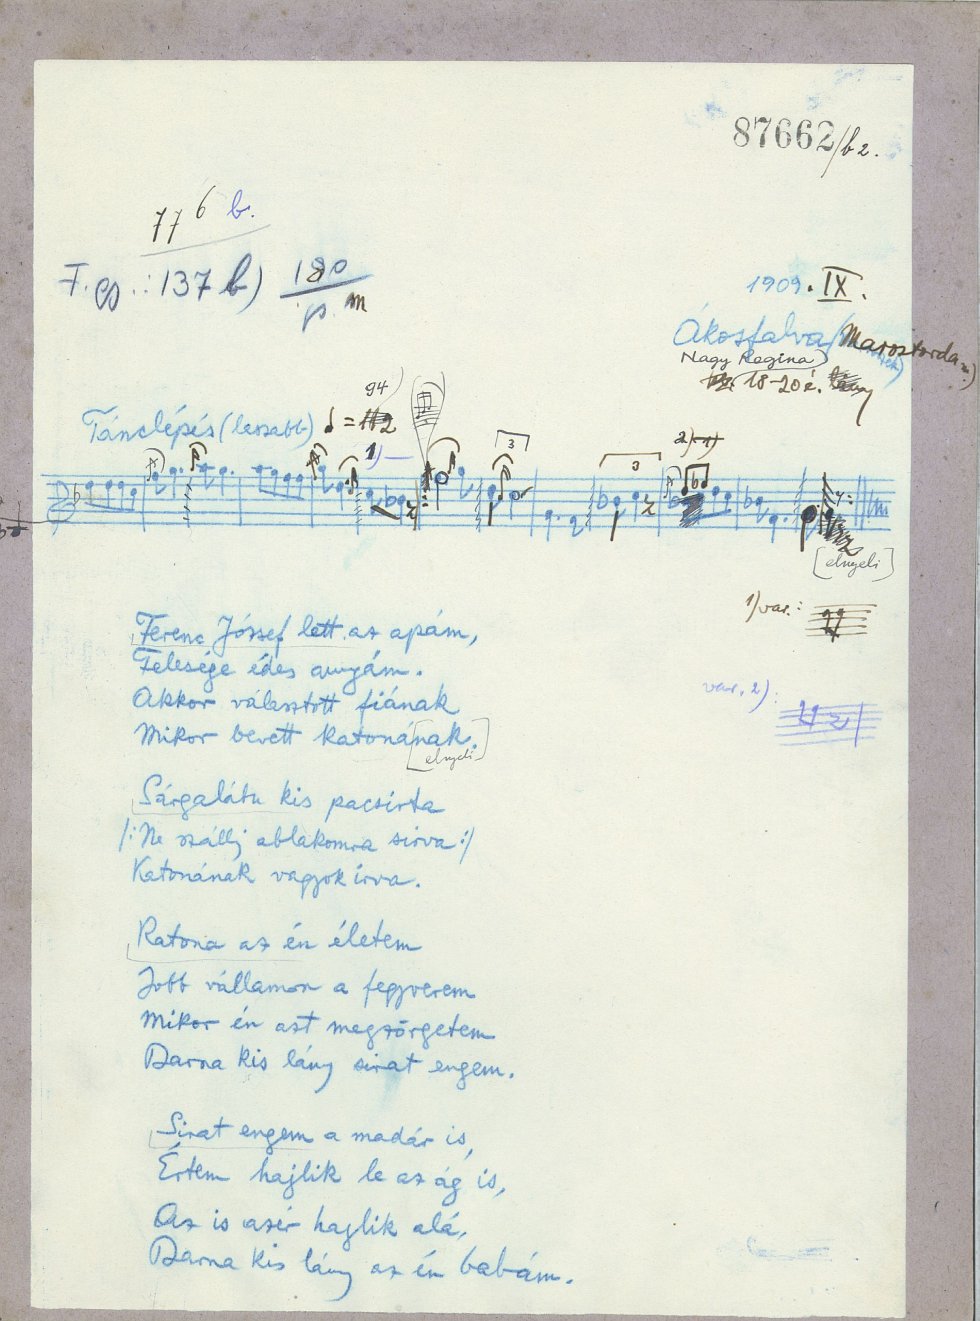 87662/b2.
77 6 b.
F. : 137 b) 180
1909. IX.
Ákosfalva (Marostorda m.)
Nagy Regina)
18-20 é.
94
Tánclépés (lassabb) = 112
1)
3
3
2) 1)
[elnyeli]
1) var.:
var. 2):
Ferenc József lett az apám,
Felesége édes anyám.
Akkor választott fiának
Mikor bevett katonának.
[elnyeli]
Sárgalábu kis pacsirta
/: Ne szállj ablakomra sirva :/
Katonának vagyok irva.
Katona az én életem
Jobb vállamon a fegyverem
Mikor én azt megzörgetem
Barna kis lány sirat engem.
Sirat engem a madár is,
Értem hajlik le az ág is,
Az is azér hajlik alá,
Barna kis lány az én babám.